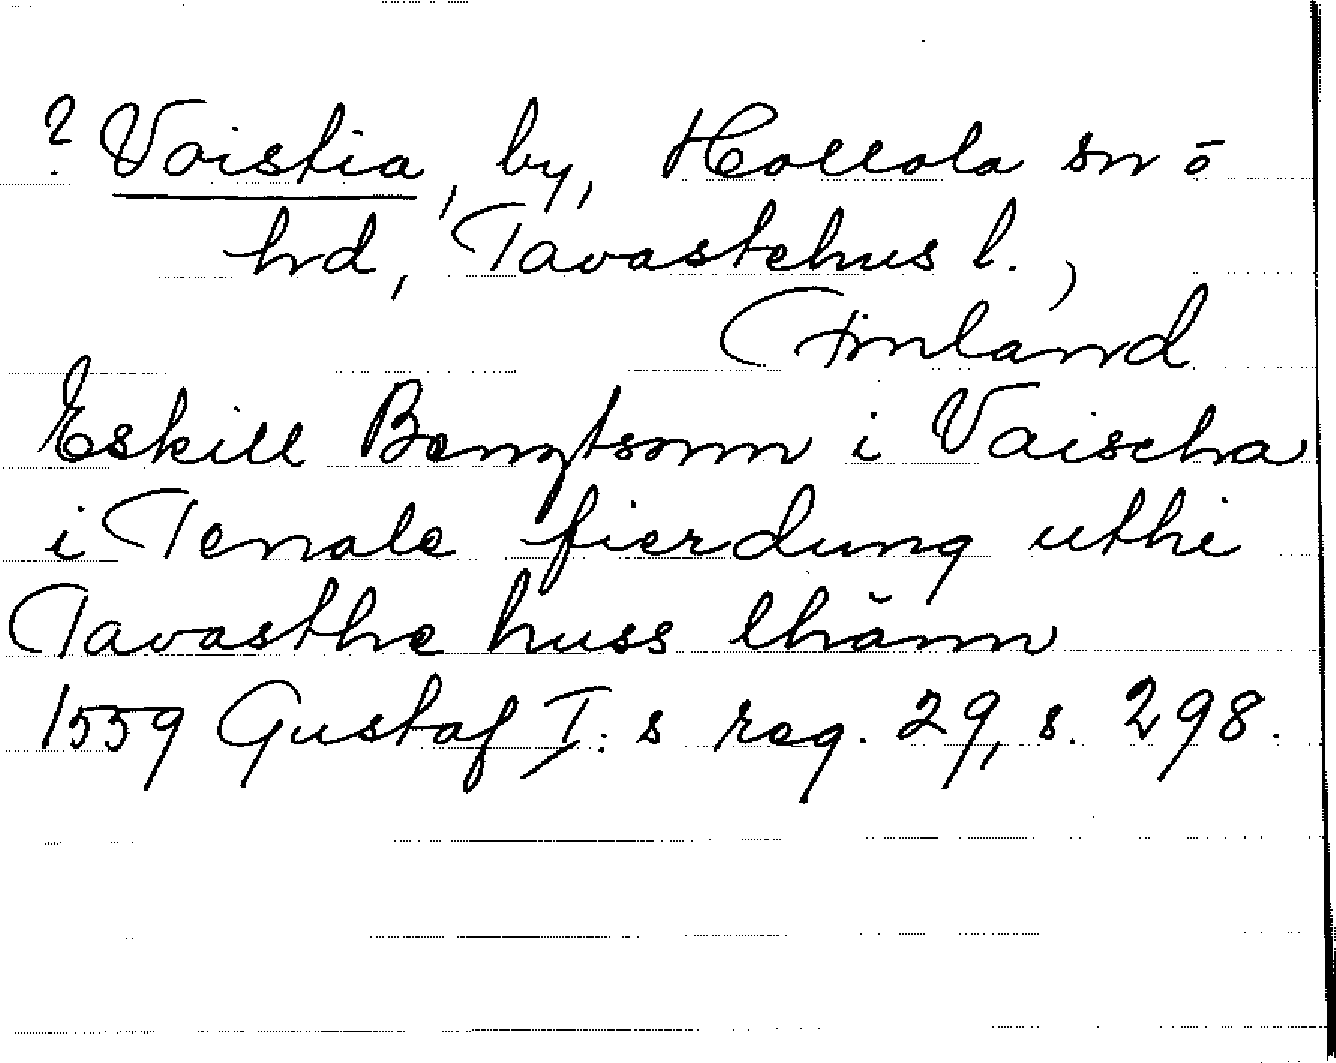 ? Voistia, by, Hollola sn ō
hd, Tavastehus l.,
Finland
Eskill Bengtsonn i Vaischa
i Tenale fierdung uthi
Tavasthe huss lhänn
1559 Gustaf I:s reg. 29, s. 298.